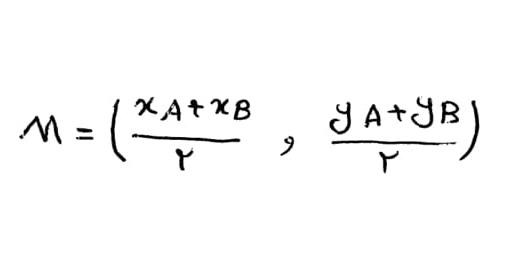 M = ( (xA + xB) / ۲ , (yA + yB) / ۲ )